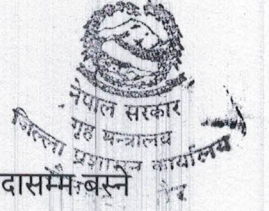 नेपाल सरकार
गृह मन्त्रालय
जिल्ला प्रशासन कार्यालय
दासम्म बस्ने